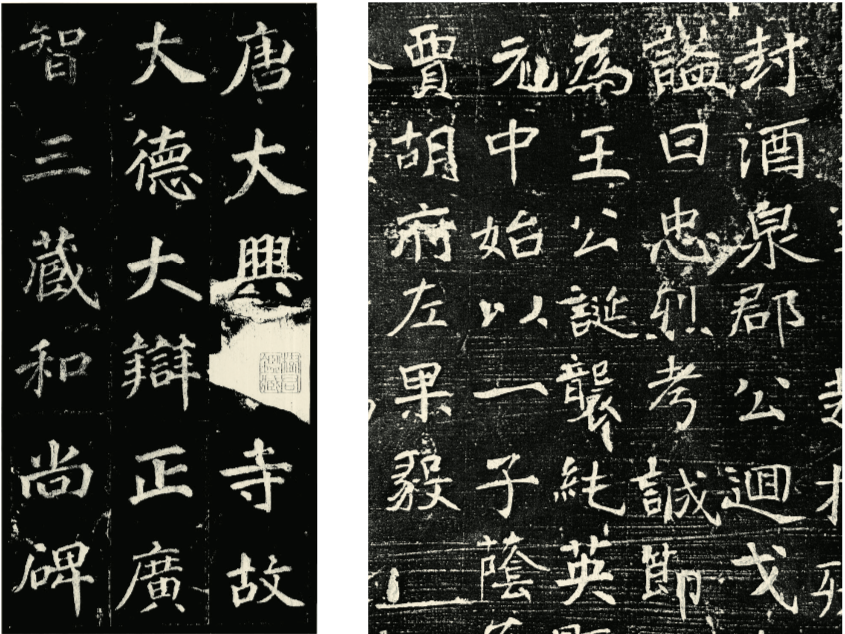 唐大興寺故
大德大辯正廣
智三藏和尚碑
封酒泉郡公迴戈
謚曰忠烈考誠節
為王公誕襲純英
元中始以一子蔭
賈胡府左果毅